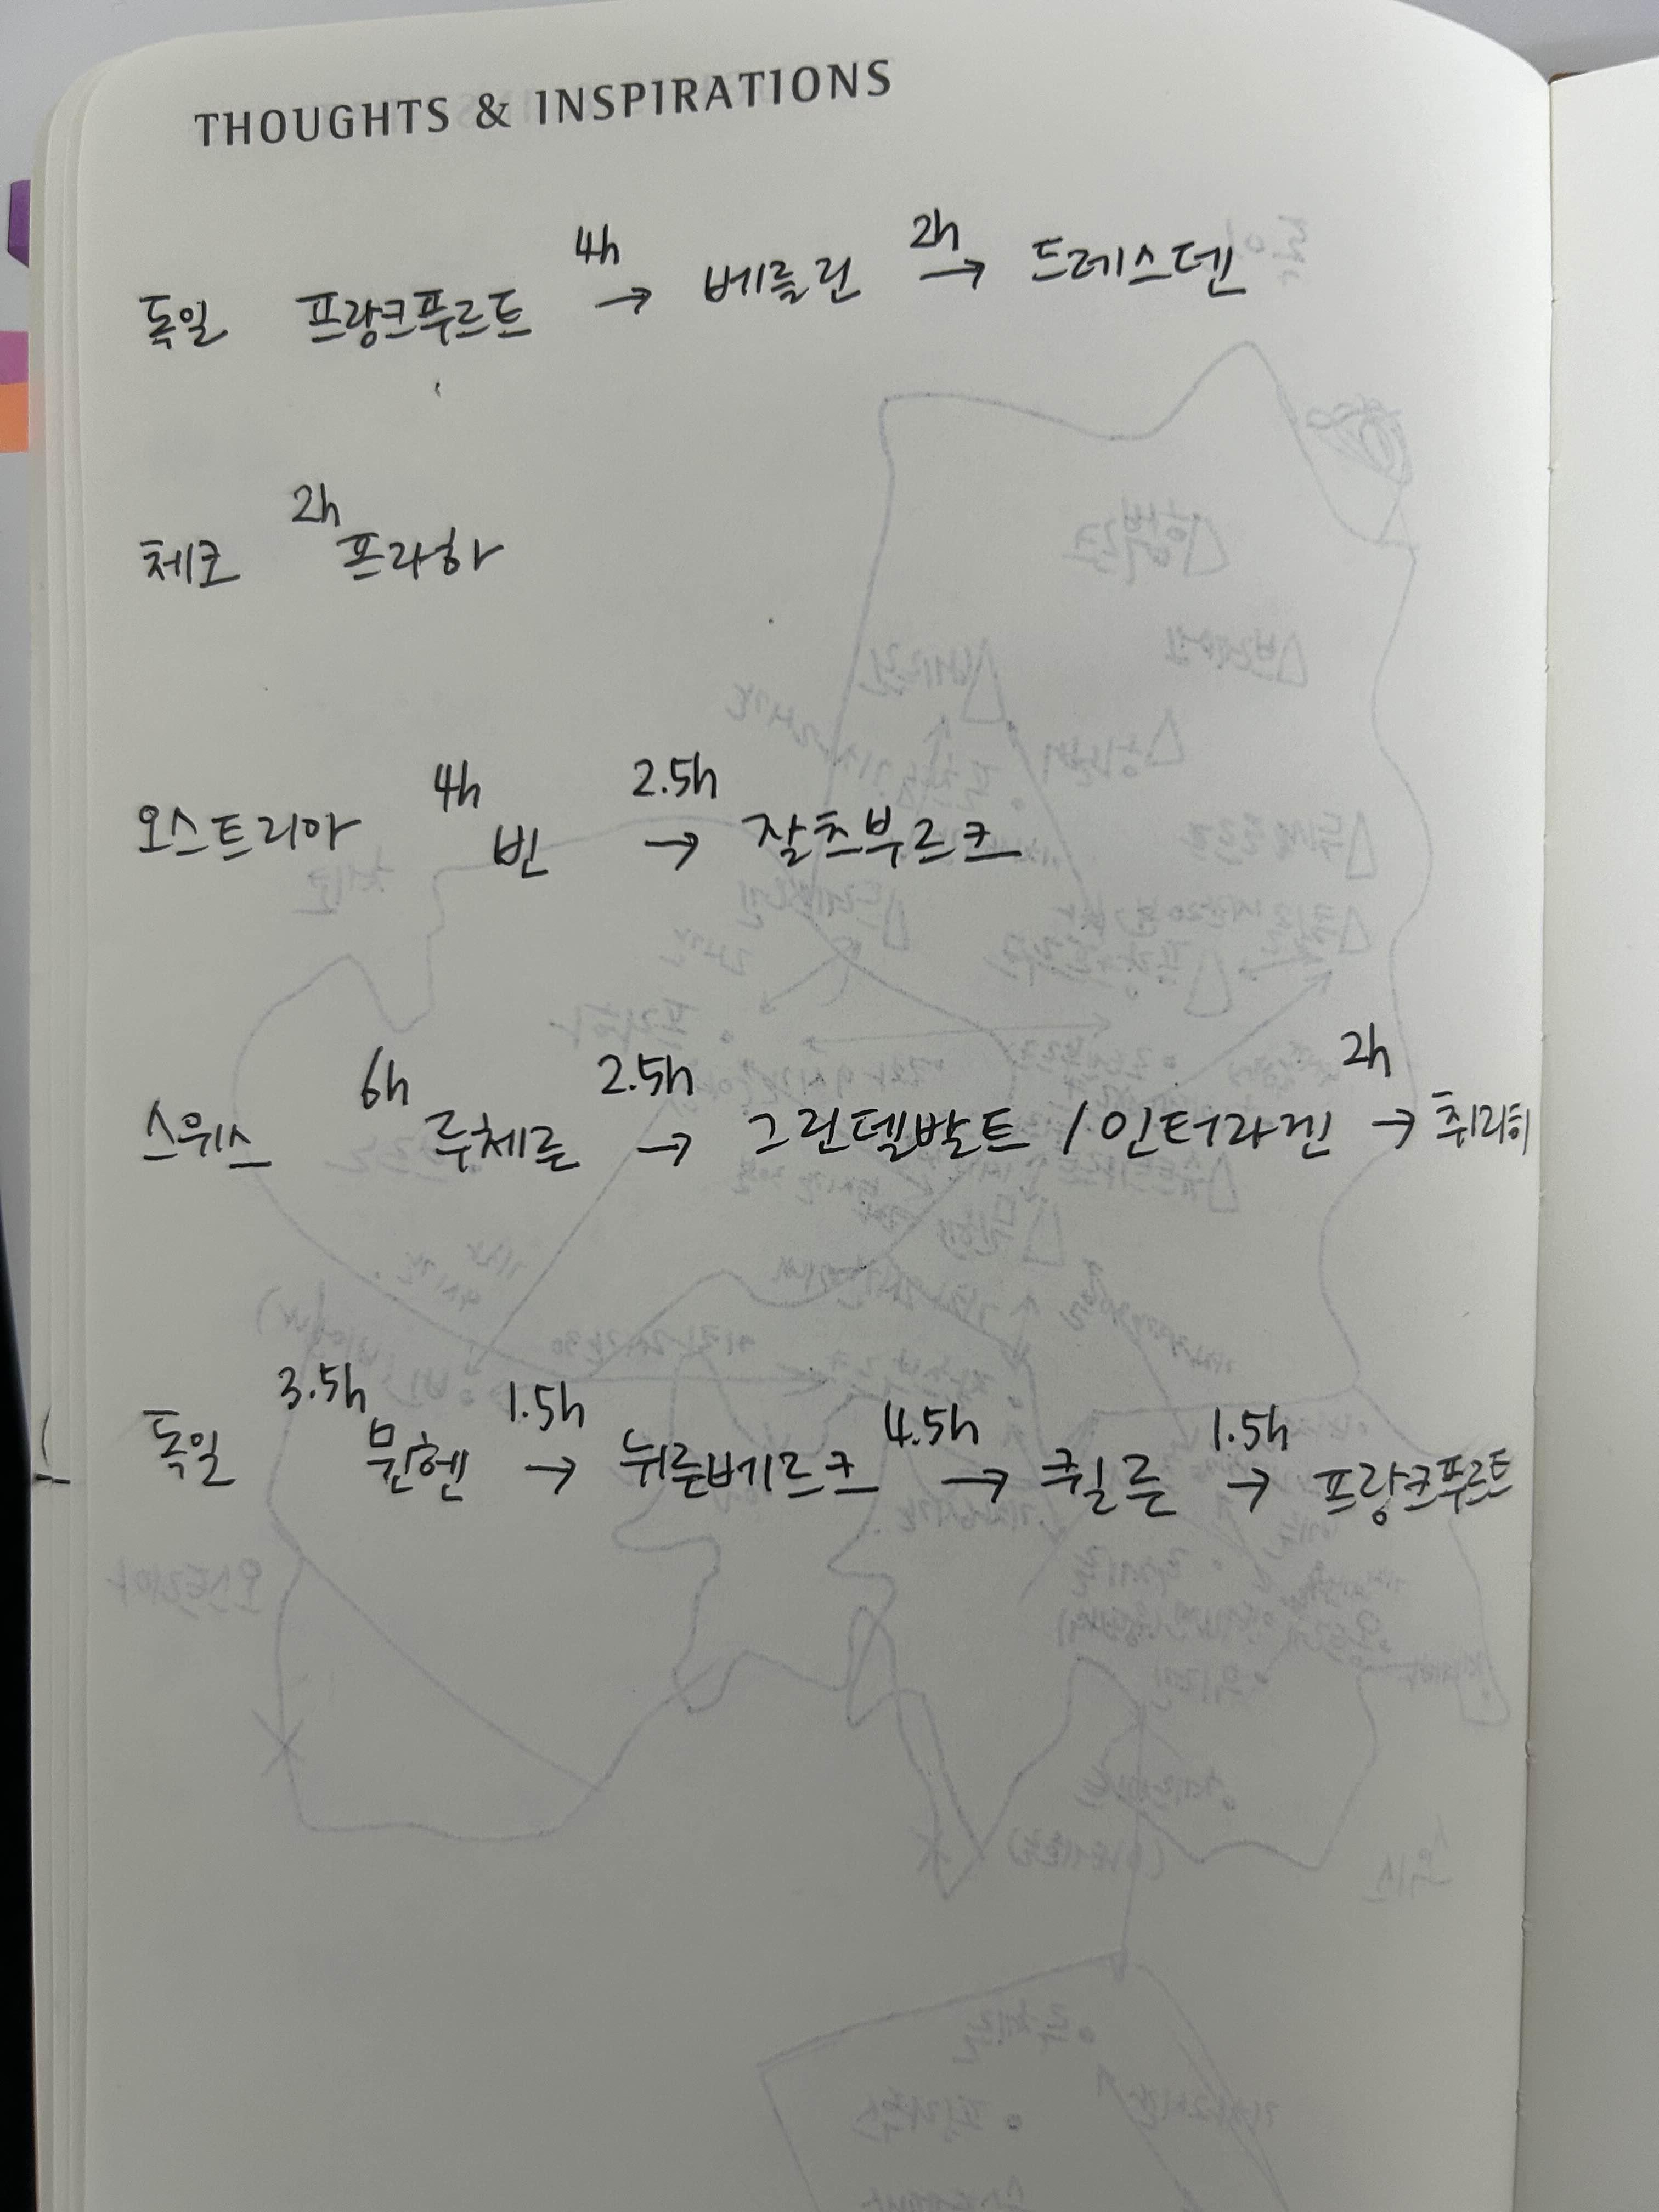 THOUGHTS & INSPIRATIONS
4h 2h
독일 프랑크푸르트 → 베를린 → 드레스덴
2h
체코 프라하
4h 2.5h
오스트리아 빈 → 잘츠부르크
6h 2.5h 2h
스위스 루체른 → 그린델발트 / 인터라켄 → 취리히
3.5h 1.5h 4.5h 1.5h
독일 뮌헨 → 뉘른베르크 → 쾰른 → 프랑크푸르트